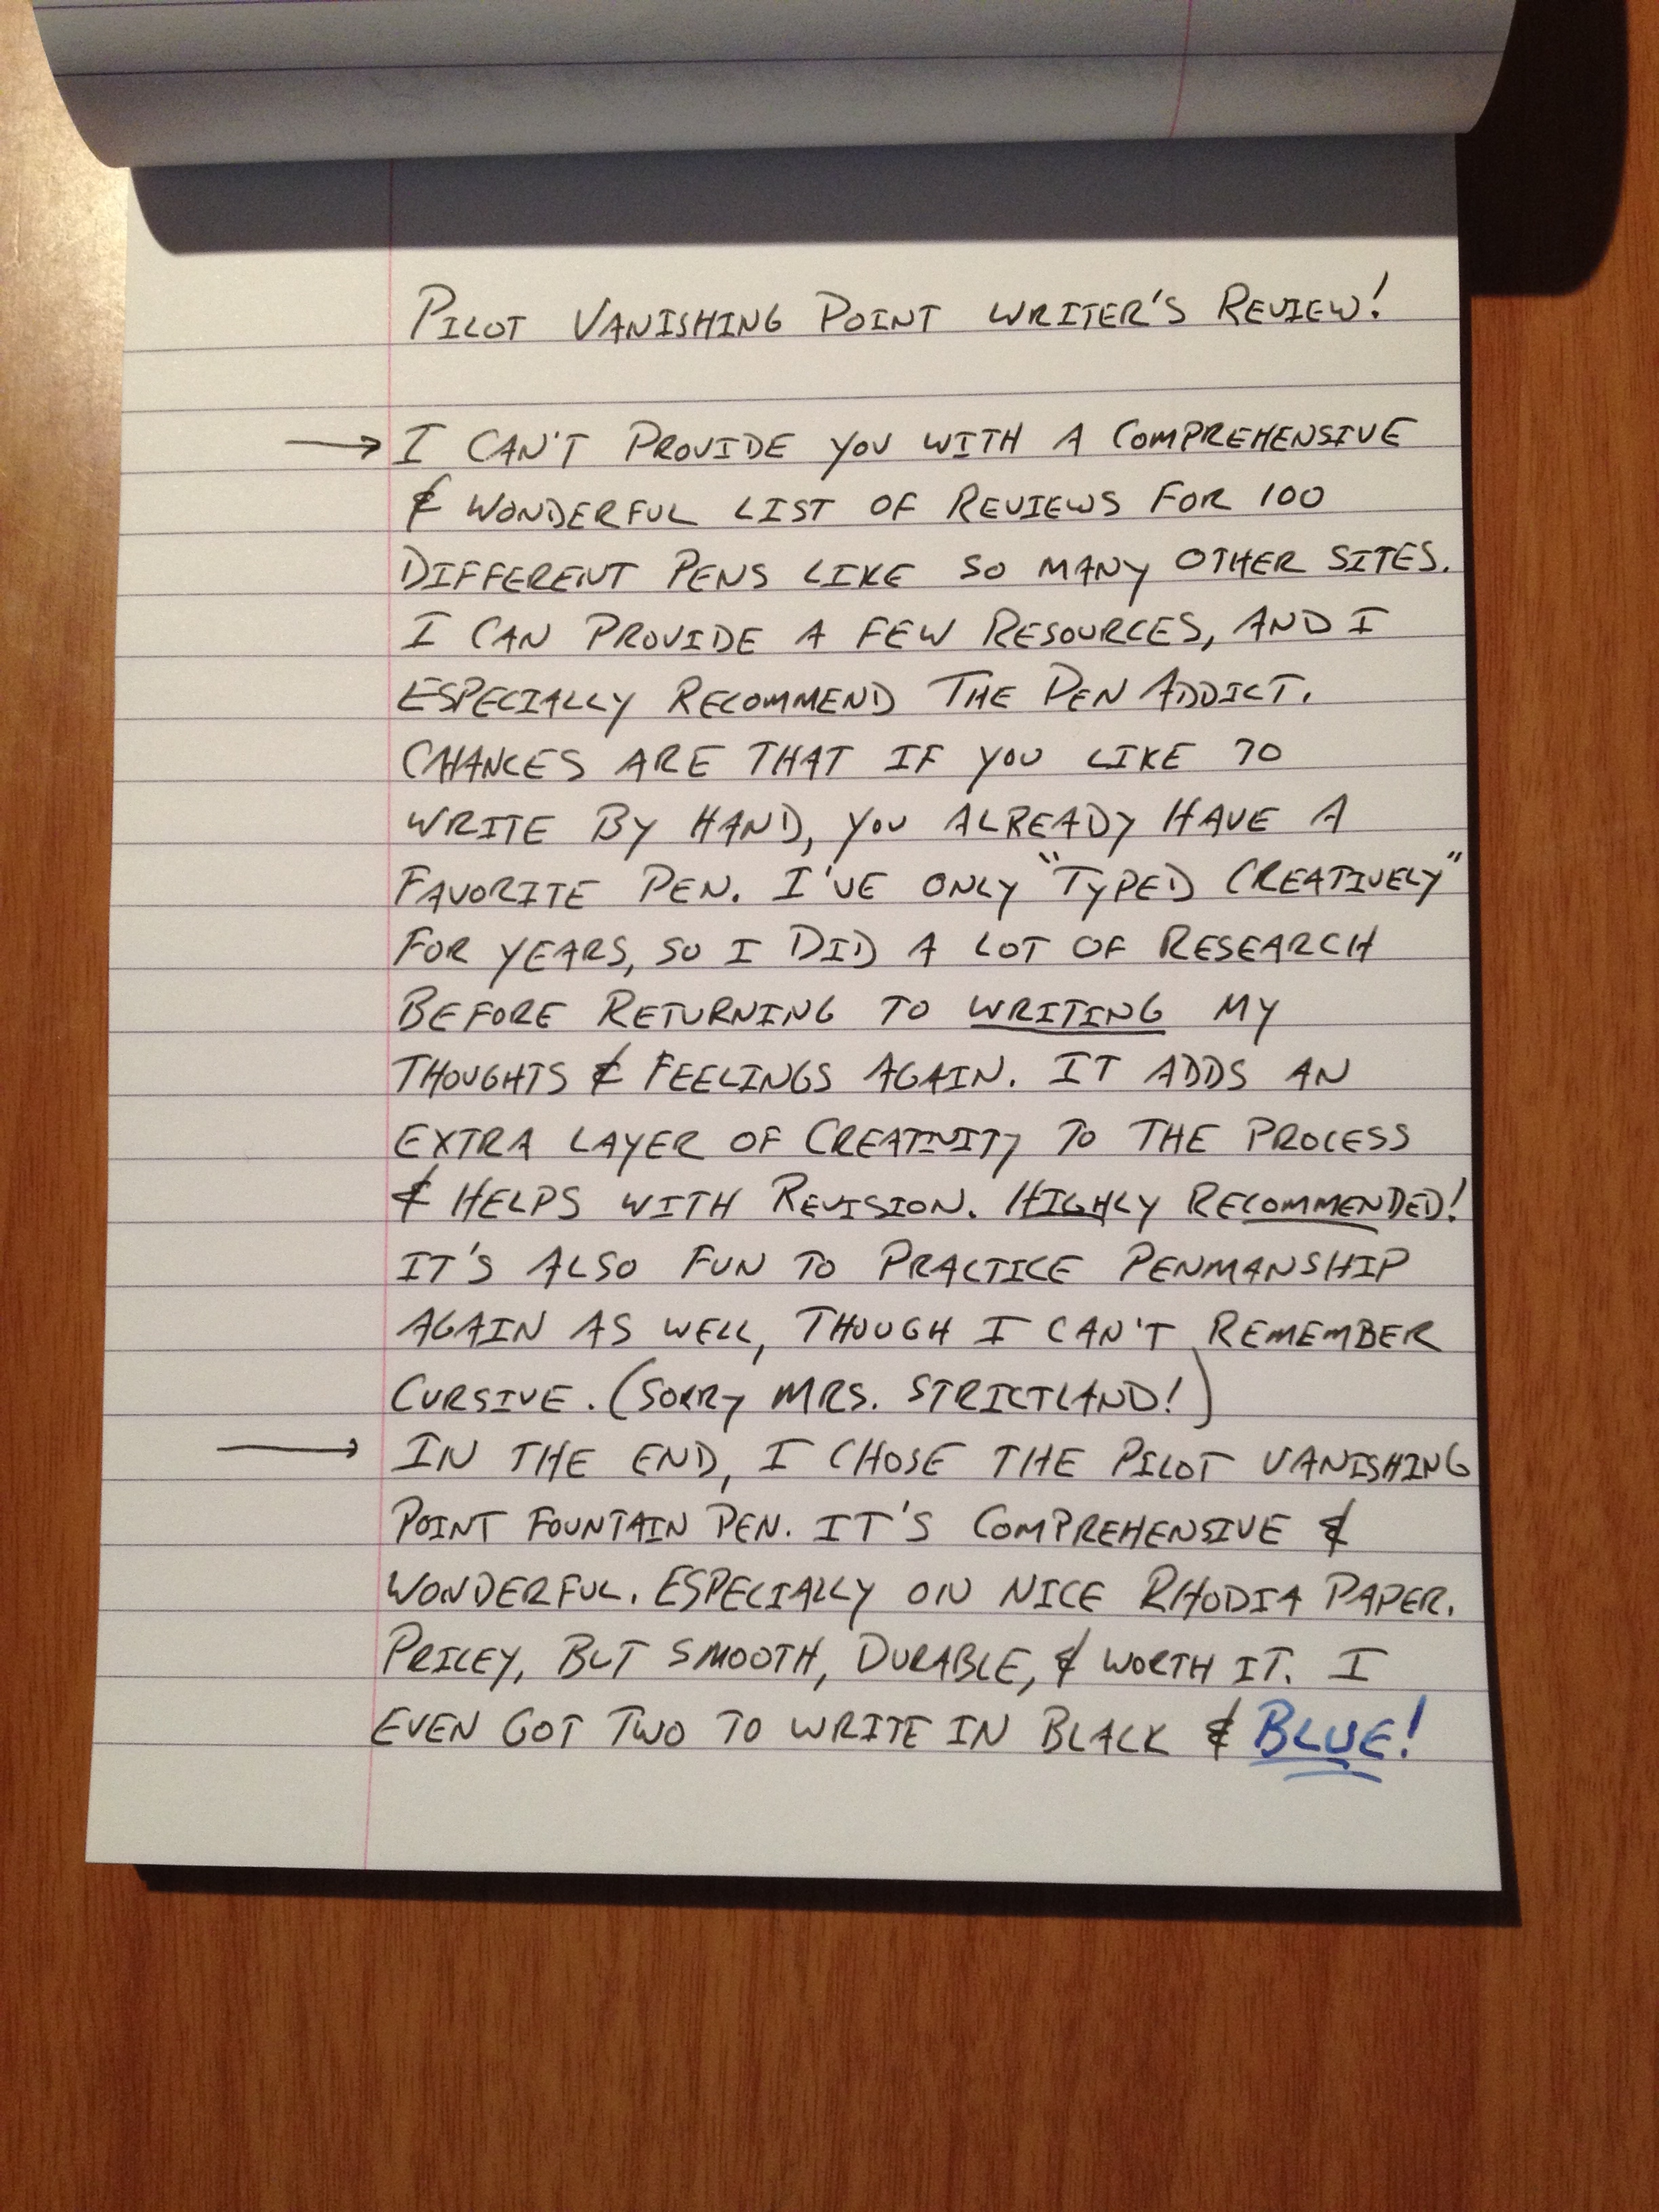 PILOT VANISHING POINT WRITER'S REVIEW!
→ I CAN'T PROVIDE YOU WITH A COMPREHENSIVE
& WONDERFUL LIST OF REVIEWS FOR 100
DIFFERENT PENS LIKE SO MANY OTHER SITES.
I CAN PROVIDE A FEW RESOURCES, AND I
ESPECIALLY RECOMMEND THE PEN ADDICT.
CHANCES ARE THAT IF YOU LIKE TO
WRITE BY HAND, YOU ALREADY HAVE A
FAVORITE PEN. I'VE ONLY "TYPED CREATIVELY"
FOR YEARS, SO I DID A LOT OF RESEARCH
BEFORE RETURNING TO WRITING MY
THOUGHTS & FEELINGS AGAIN. IT ADDS AN
EXTRA LAYER OF CREATIVITY TO THE PROCESS
& HELPS WITH REVISION. HIGHLY RECOMMENDED!
IT'S ALSO FUN TO PRACTICE PENMANSHIP
AGAIN AS WELL, THOUGH I CAN'T REMEMBER
CURSIVE. (SORRY MRS. STRICTLAND!)
→ IN THE END, I CHOSE THE PILOT VANISHING
POINT FOUNTAIN PEN. IT'S COMPREHENSIVE &
WONDERFUL. ESPECIALLY ON NICE RHODIA PAPER.
PRICEY, BUT SMOOTH, DURABLE, & WORTH IT. I
EVEN GOT TWO TO WRITE IN BLACK & BLUE!